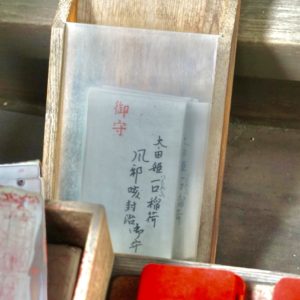 御守
太田姫一口稲荷
風邪咳封治御守